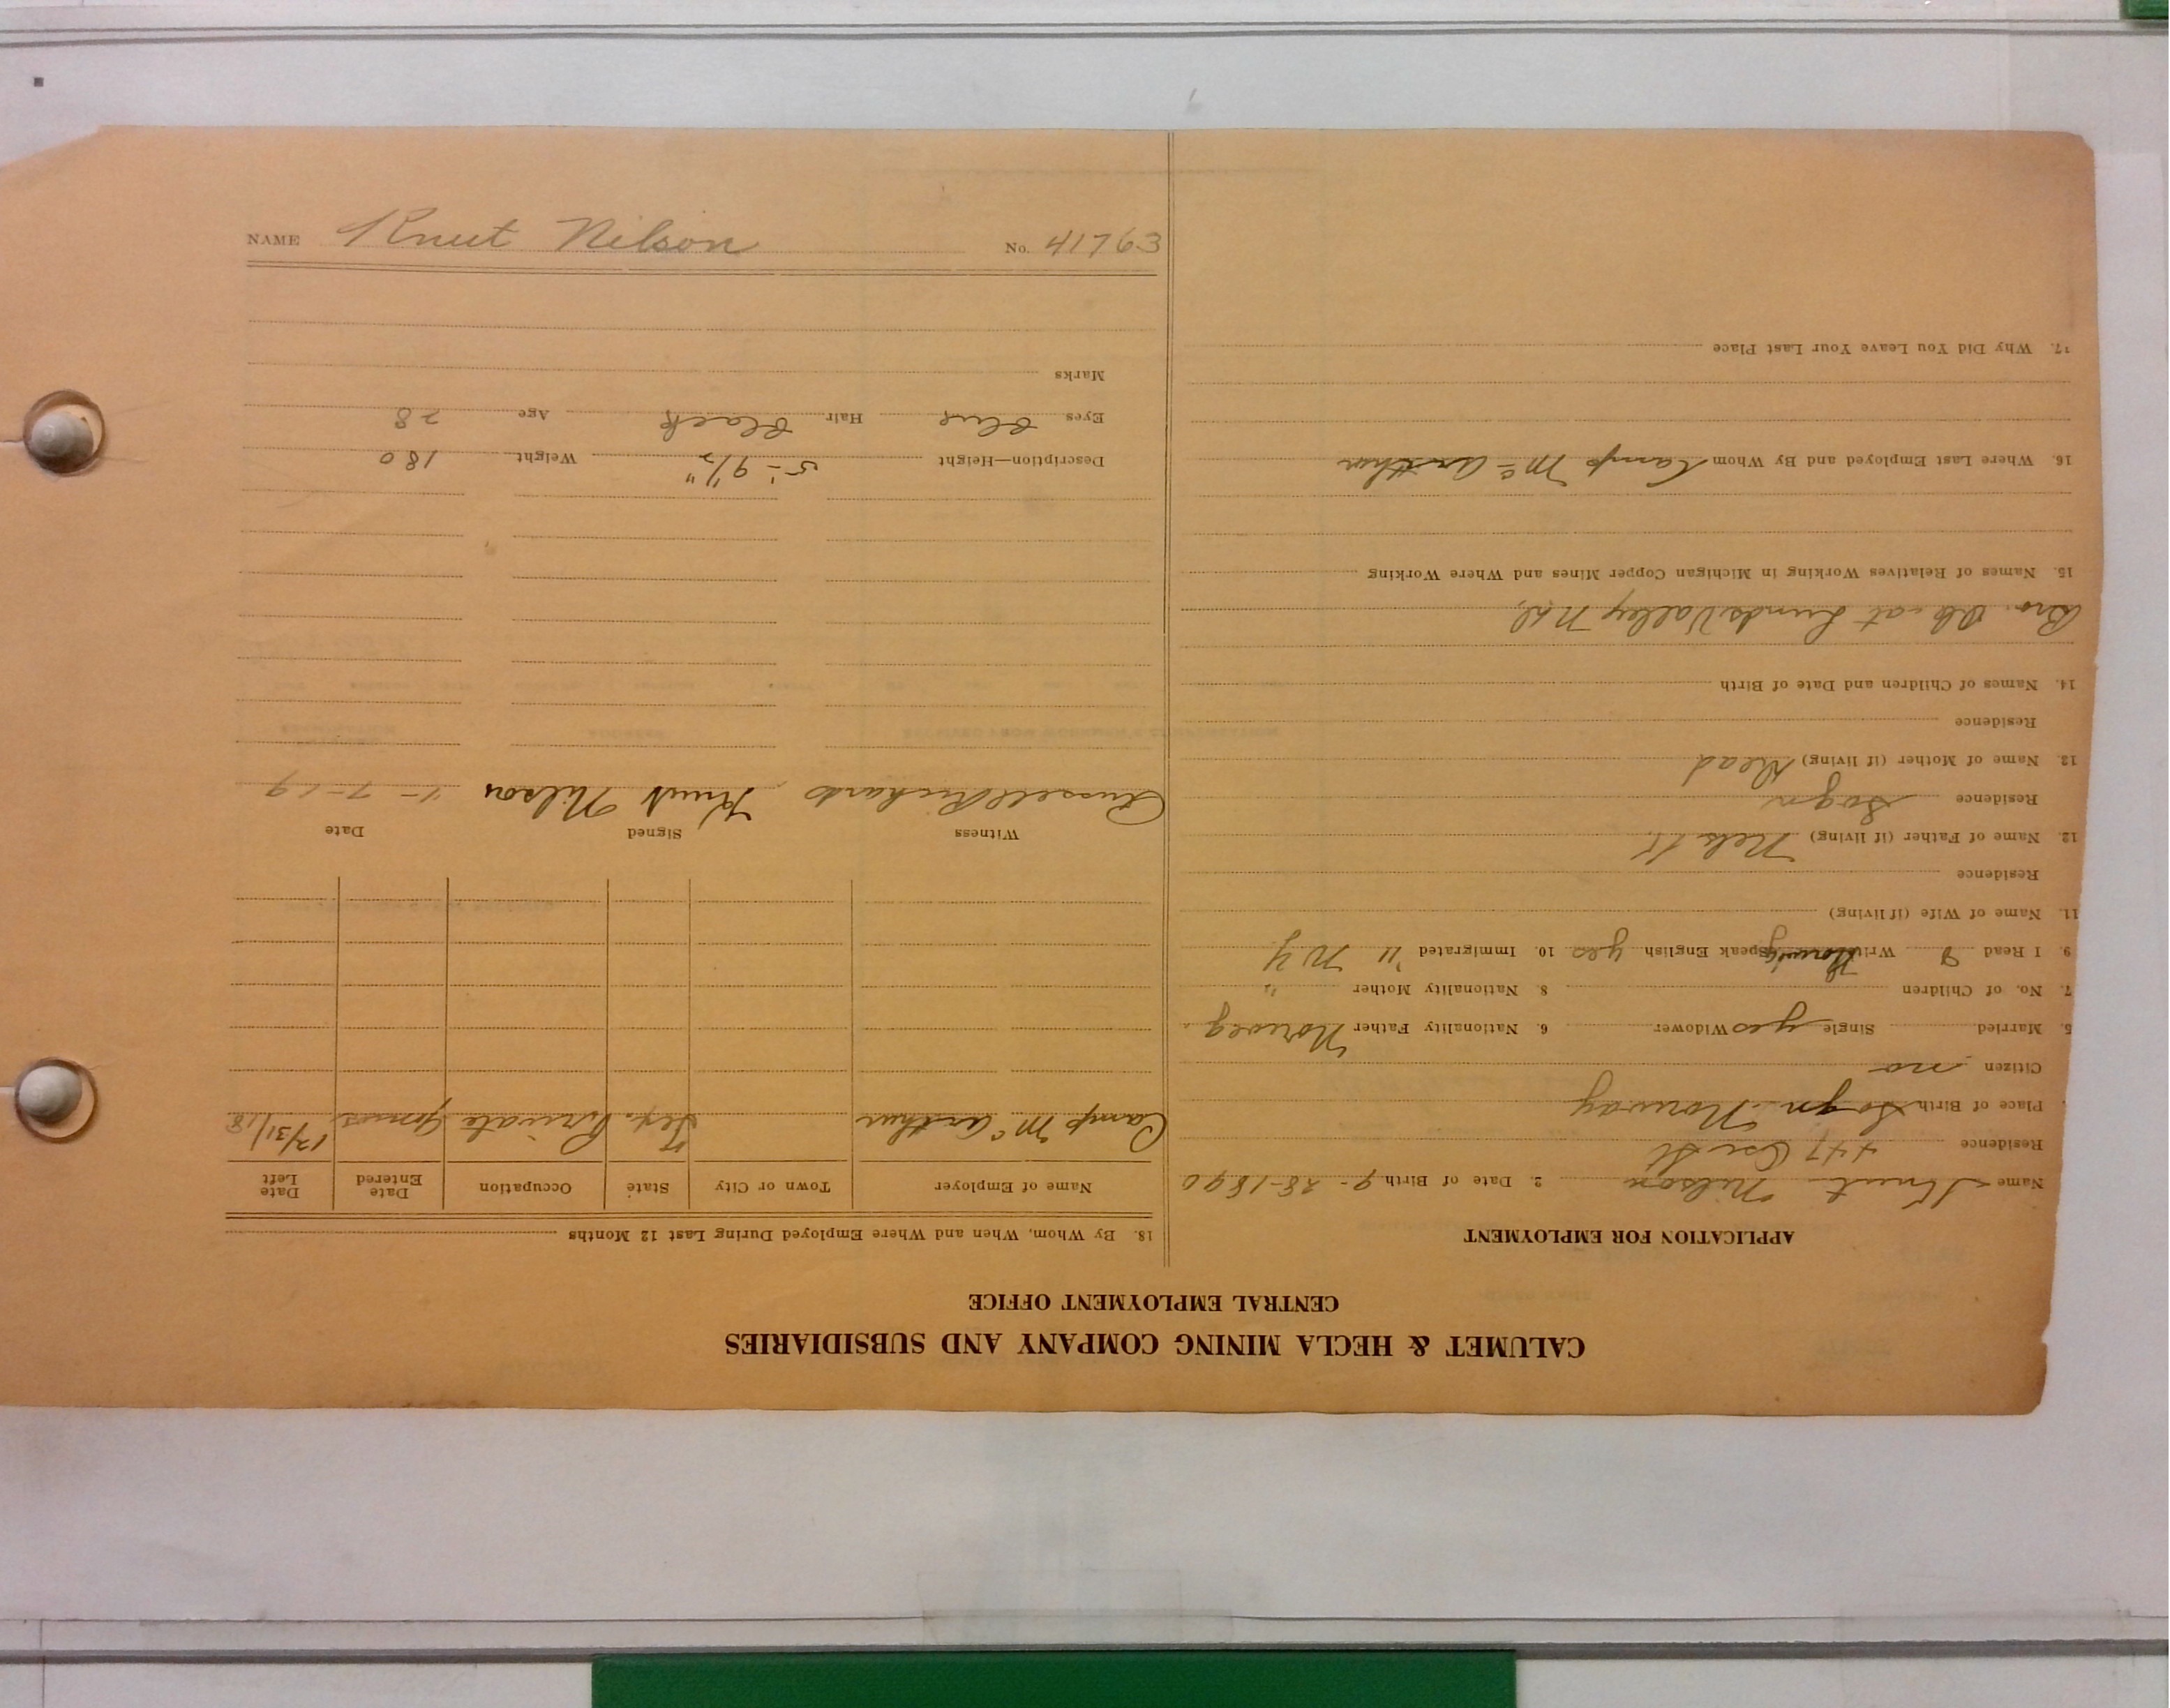 CALUMET & HECLA MINING COMPANY AND SUBSIDIARIES
CENTRAL EMPLOYMENT OFFICE
APPLICATION FOR EMPLOYMENT
Name Knut Nilson 2. Date of Birth 9-28-1890
Residence 447 St
Place of Birth Sogn Norway
Citizen no
5. Married Single yes Widower 6. Nationality Father Norweg.
7. No. of Children 8. Nationality Mother "
9. I Read Write Norwig Speak English yes 10. Immigrated '11 N Y
11. Name of Wife (if living)
Residence
12. Name of Father (if living) Nels K
Residence Sogn
13. Name of Mother (if living) Dead
Residence
14. Names of Children and Date of Birth
Bro. at Lunds Valley N.D.
15. Names of Relatives Working in Michigan Copper Mines and Where Working
16. Where Last Employed and By Whom Camp Mc Arthur
17. Why Did You Leave Your Last Place
18. By Whom, When and Where Employed During Last 12 Months
Name of Employer Town or City State Occupation Date Entered Date Left
Camp Mc Arthur Tex. Private 12/31/18
Witness Signed Date
Russell Richards Knut Nilson 4-7-19
Description—Height 5'-9½" Weight 180
Eyes Blue Hair Black Age 28
Marks
NAME Knut Nilson No. 41763